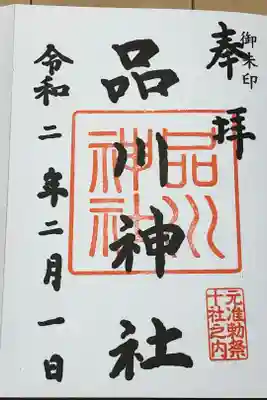 御朱印
奉拝
品川神社
品川神社
元准勅祭
十社之内
令和二年二月一日